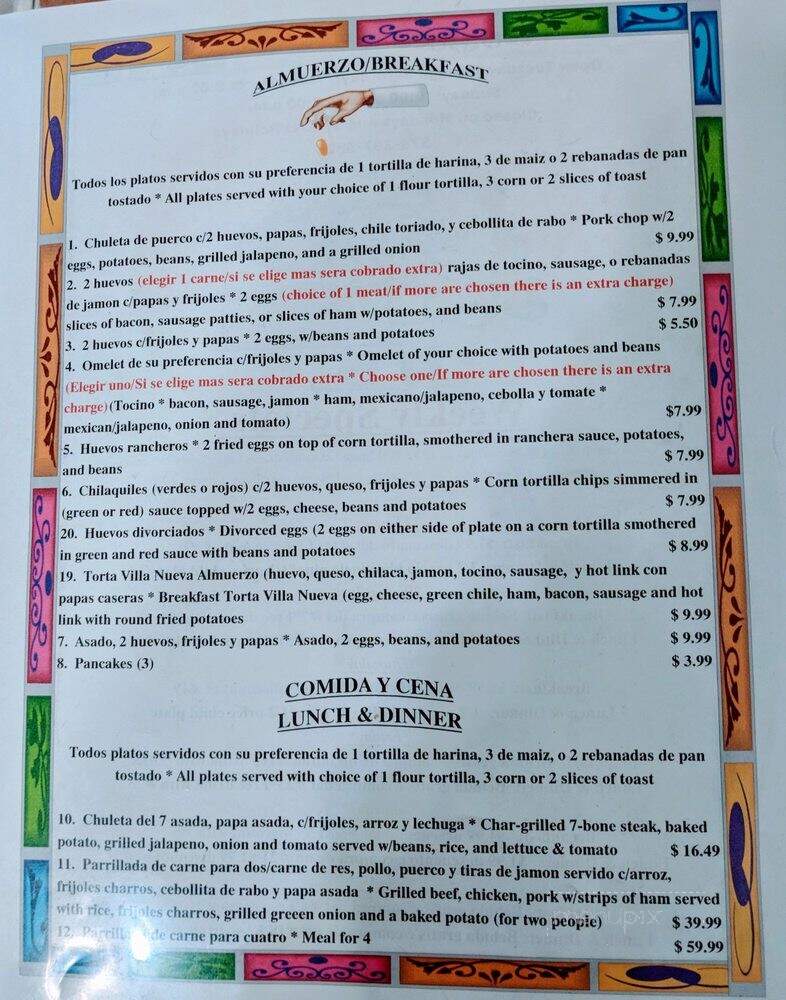 ALMUERZO/BREAKFAST
Todos los platos servidos con su preferencia de 1 tortilla de harina, 3 de maiz o 2 rebanadas de pan
tostado * All plates served with your choice of 1 flour tortilla, 3 corn or 2 slices of toast
1. Chuleta de puerco c/2 huevos, papas, frijoles, chile toriado, y cebollita de rabo * Pork chop w/2
eggs, potatoes, beans, grilled jalapeno, and a grilled onion $ 9.99
2. 2 huevos (elegir 1 carne/si se elige mas sera cobrado extra) rajas de tocino, sausage, o rebanadas
de jamon c/papas y frijoles * 2 eggs (choice of 1 meat/if more are chosen there is an extra charge)
slices of bacon, sausage patties, or slices of ham w/potatoes, and beans $ 7.99
3. 2 huevos c/frijoles y papas * 2 eggs, w/beans and potatoes $ 5.50
4. Omelet de su preferencia c/frijoles y papas * Omelet of your choice with potatoes and beans
(Elegir uno/Si se elige mas sera cobrado extra * Choose one/If more are chosen there is an extra
charge)(Tocino * bacon, sausage, jamon * ham, mexicano/jalapeno, cebolla y tomate *
mexican/jalapeno, onion and tomato) $7.99
5. Huevos rancheros * 2 fried eggs on top of corn tortilla, smothered in ranchera sauce, potatoes,
and beans $ 7.99
6. Chilaquiles (verdes o rojos) c/2 huevos, queso, frijoles y papas * Corn tortilla chips simmered in
(green or red) sauce topped w/2 eggs, cheese, beans and potatoes $ 7.99
20. Huevos divorciados * Divorced eggs (2 eggs on either side of plate on a corn tortilla smothered
in green and red sauce with beans and potatoes $ 8.99
19. Torta Villa Nueva Almuerzo (huevo, queso, chilaca, jamon, tocino, sausage, y hot link con
papas caseras * Breakfast Torta Villa Nueva (egg, cheese, green chile, ham, bacon, sausage and hot
link with round fried potatoes $ 9.99
7. Asado, 2 huevos, frijoles y papas * Asado, 2 eggs, beans, and potatoes $ 9.99
8. Pancakes (3) $ 3.99
COMIDA Y CENA
LUNCH & DINNER
Todos platos servidos con su preferencia de 1 tortilla de harina, 3 de maiz, o 2 rebanadas de pan
tostado * All plates served with choice of 1 flour tortilla, 3 corn or 2 slices of toast
10. Chuleta del 7 asada, papa asada, c/frijoles, arroz y lechuga * Char-grilled 7-bone steak, baked
potato, grilled jalapeno, onion and tomato served w/beans, rice, and lettuce & tomato $ 16.49
11. Parrillada de carne para dos/carne de res, pollo, puerco y tiras de jamon servido c/arroz,
frijoles charros, cebollita de rabo y papa asada * Grilled beef, chicken, pork w/strips of ham served
with rice, frijoles charros, grilled greeen onion and a baked potato (for two people) $ 39.99
12. Parrillada de carne para cuatro * Meal for 4 $ 59.99